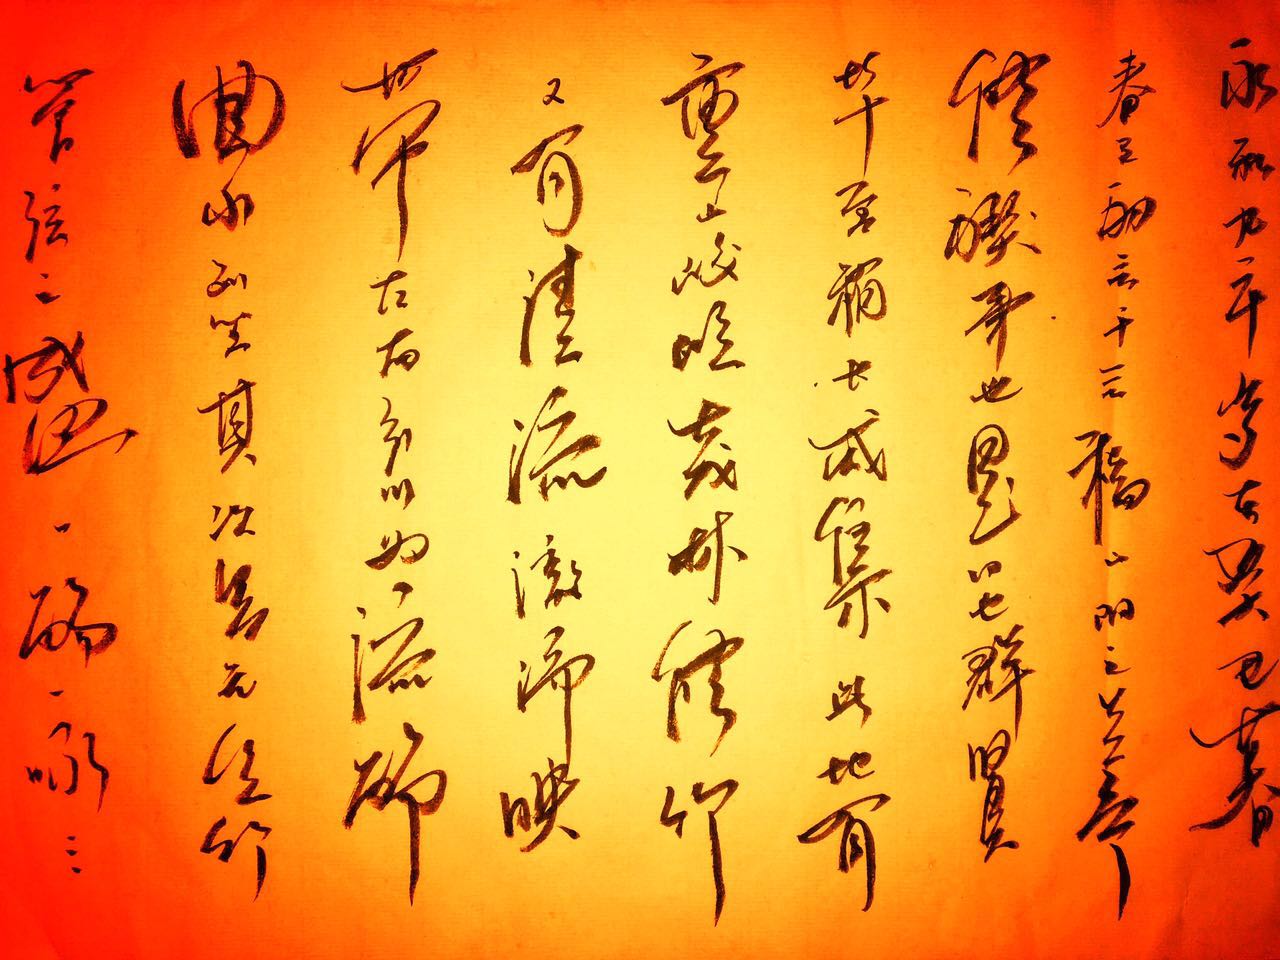 永和九年歲在癸丑暮
春之初會于會稽山陰之蘭亭
修禊事也是日也群賢
畢至稍長咸集此地有
山峻嶺茂林修竹
又有清流激湍映
帶左右引以為流觴
曲水列坐其次雖無絲竹
管弦之盛一觴一詠